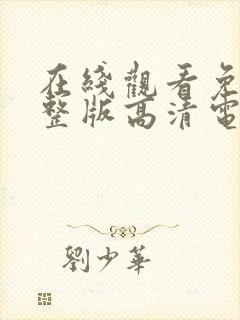 在綫觀看免
整版高清電
劉少華